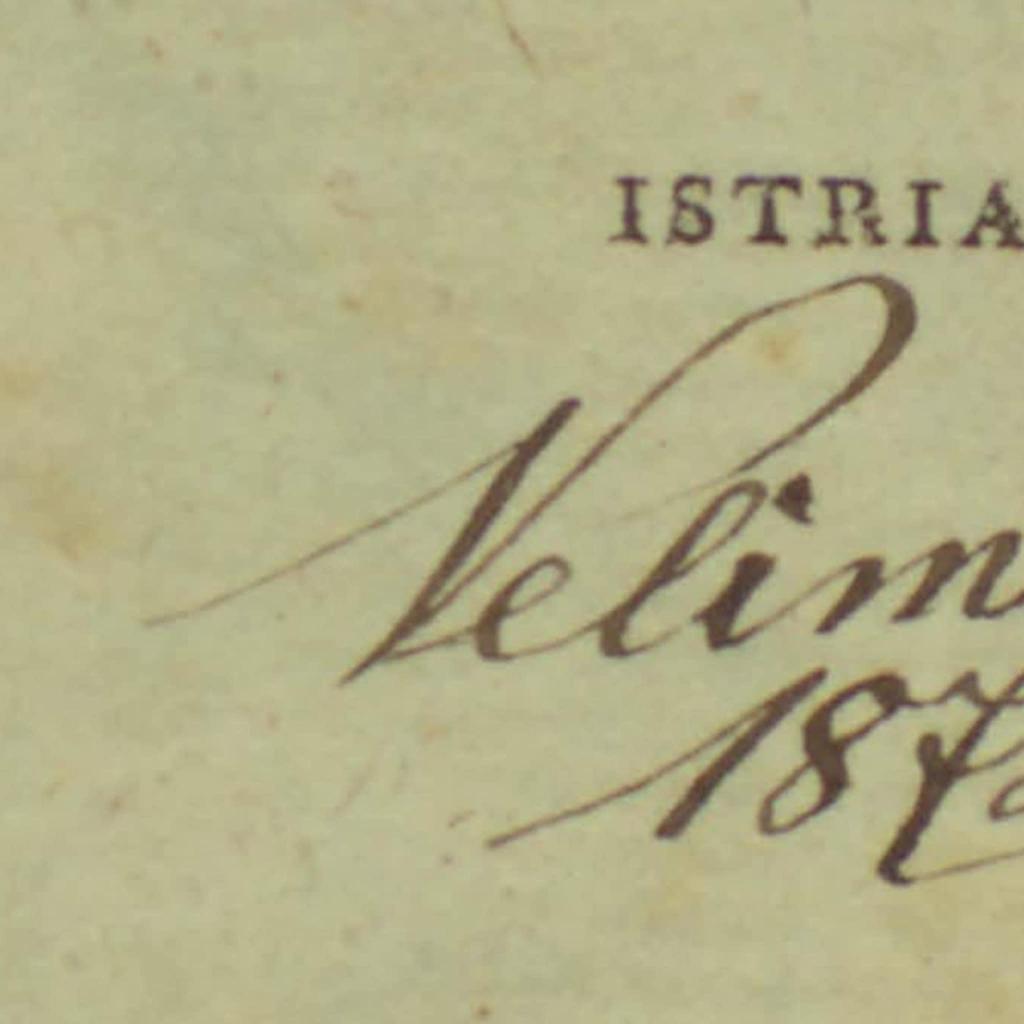 ISTRIA
Velim
187